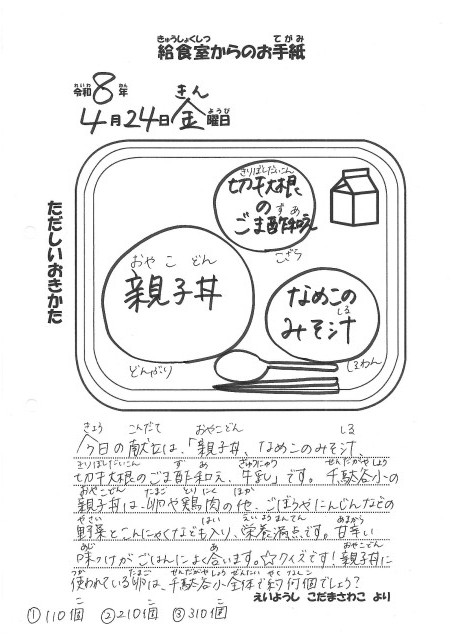 きゅうしょくしつ てがみ
給食室からのお手紙
れいわ ねん きん
令和8年
4月24日金曜日
ようび
ただしいおきかた
きりぼしだいこん
切干大根
の
ずあ
ごま酢和え
こざら
おやこどん
親子丼
どんぶり
なめこの
しる
みそ汁
しるわん
きょう こんだて おやこどん しる
今日の献立は、「親子丼、なめこのみそ汁、
きりぼしだいこん す あ ぎゅうにゅう せんだがやしょう
切干大根のごま酢和え、牛乳」です。千駄谷小の
おやこどん たまご とりにく ほか
親子丼は、卵や鶏肉の他、ごぼうやにんじんなどの
やさい はい えいようまんてん あまから
野菜とこんにゃくなども入り、栄養満点です。甘辛い
あじ あ おやこどん
味つけがごはんによく合います。☆クイズです!親子丼に
つか たまご せんだがやしょうぜんたい やくなんこ
使われている卵は、千駄谷小全体で約何個でしょう?
えいようし こだまさわこ より
①110個 ②210個 ③310個